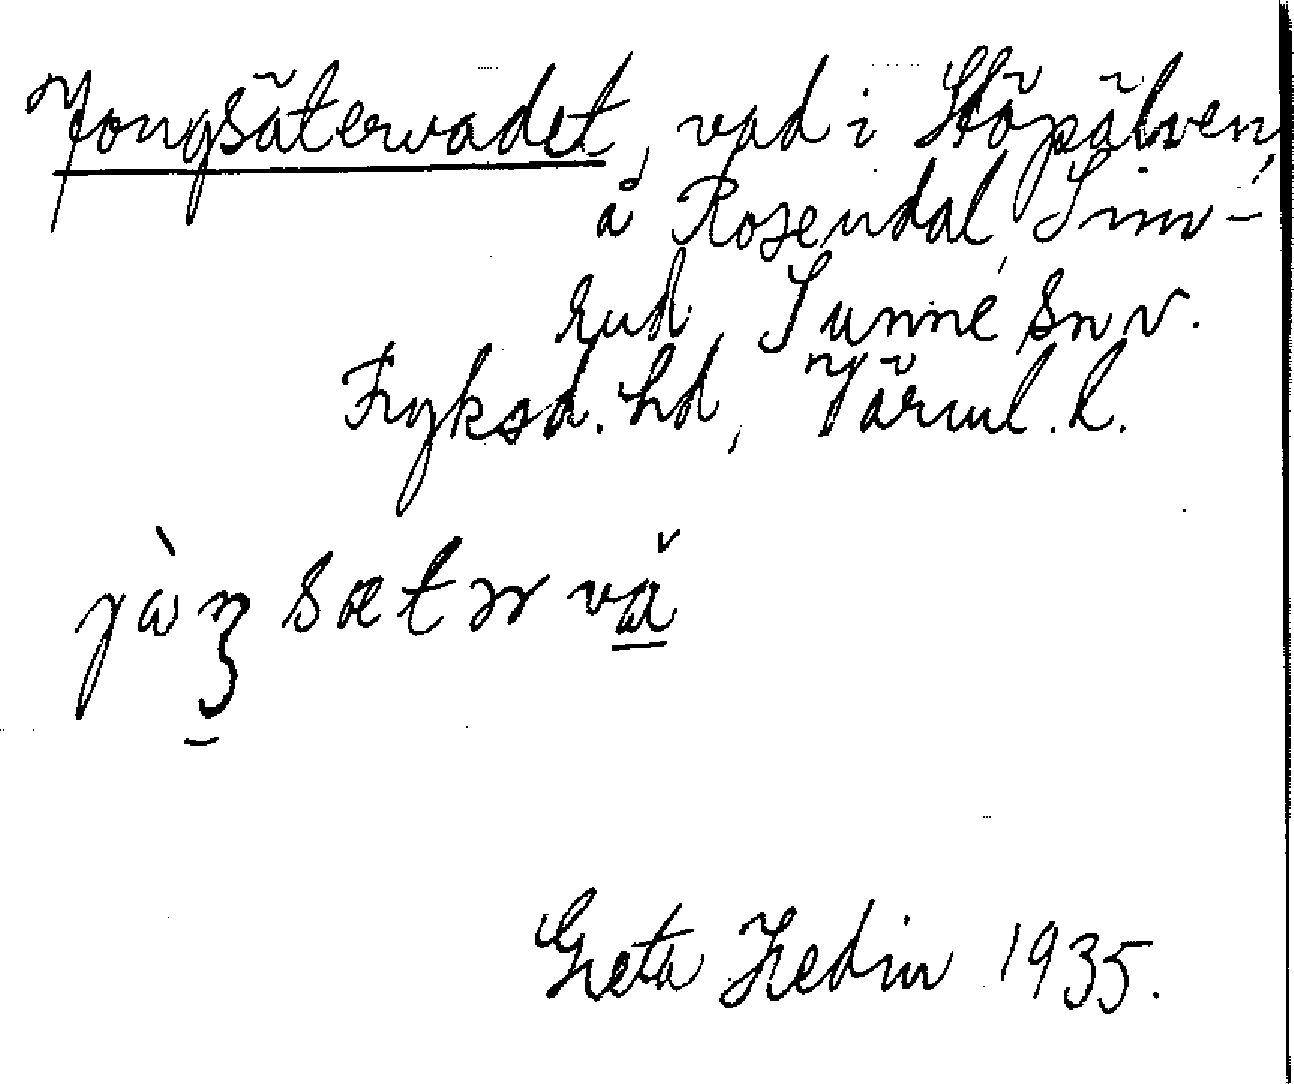 Jongsätervadet, vad i Stöpälven,
å Rosendal, Sim-
rud, Sunne sn v.
Fryksd. hd, Värml. l.
sætər
Greta Hedin 1935.